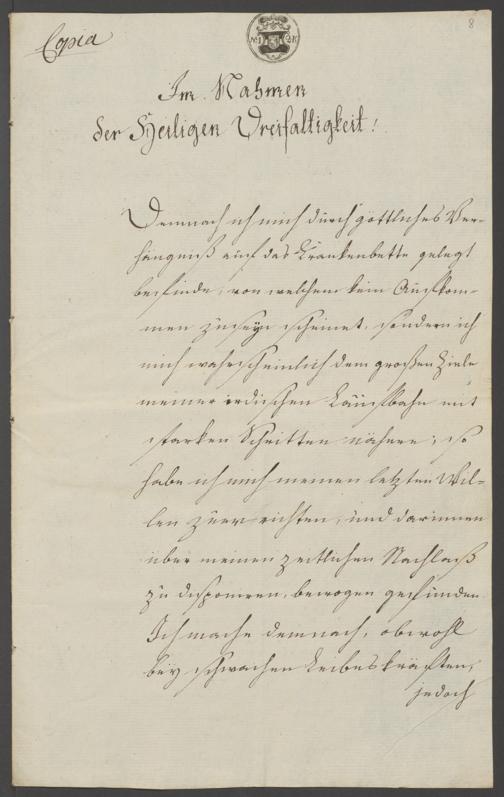 8
Copia
Im Nahmen
der Heiligen Dreifaltigkeit!
Demnach ich mich durch göttliches Ver-
hängniß auf das Krankenbette gelegt
befinde, von welchem kein Aufkom-
men zu seyn scheinet, sondern ich
mich wahrscheinlich dem großen Ziele
meiner irdischen Laufbahn mit
starken Schritten nähere; so
habe ich mich meinen letzten Wil-
len zu errichten, und darinnen
über meinen zeitlichen Nachlaß
zu disponiren, bewogen gefunden.
Ich mache demnach, obwohl
bey schwachen Leibeskräften,
jedoch